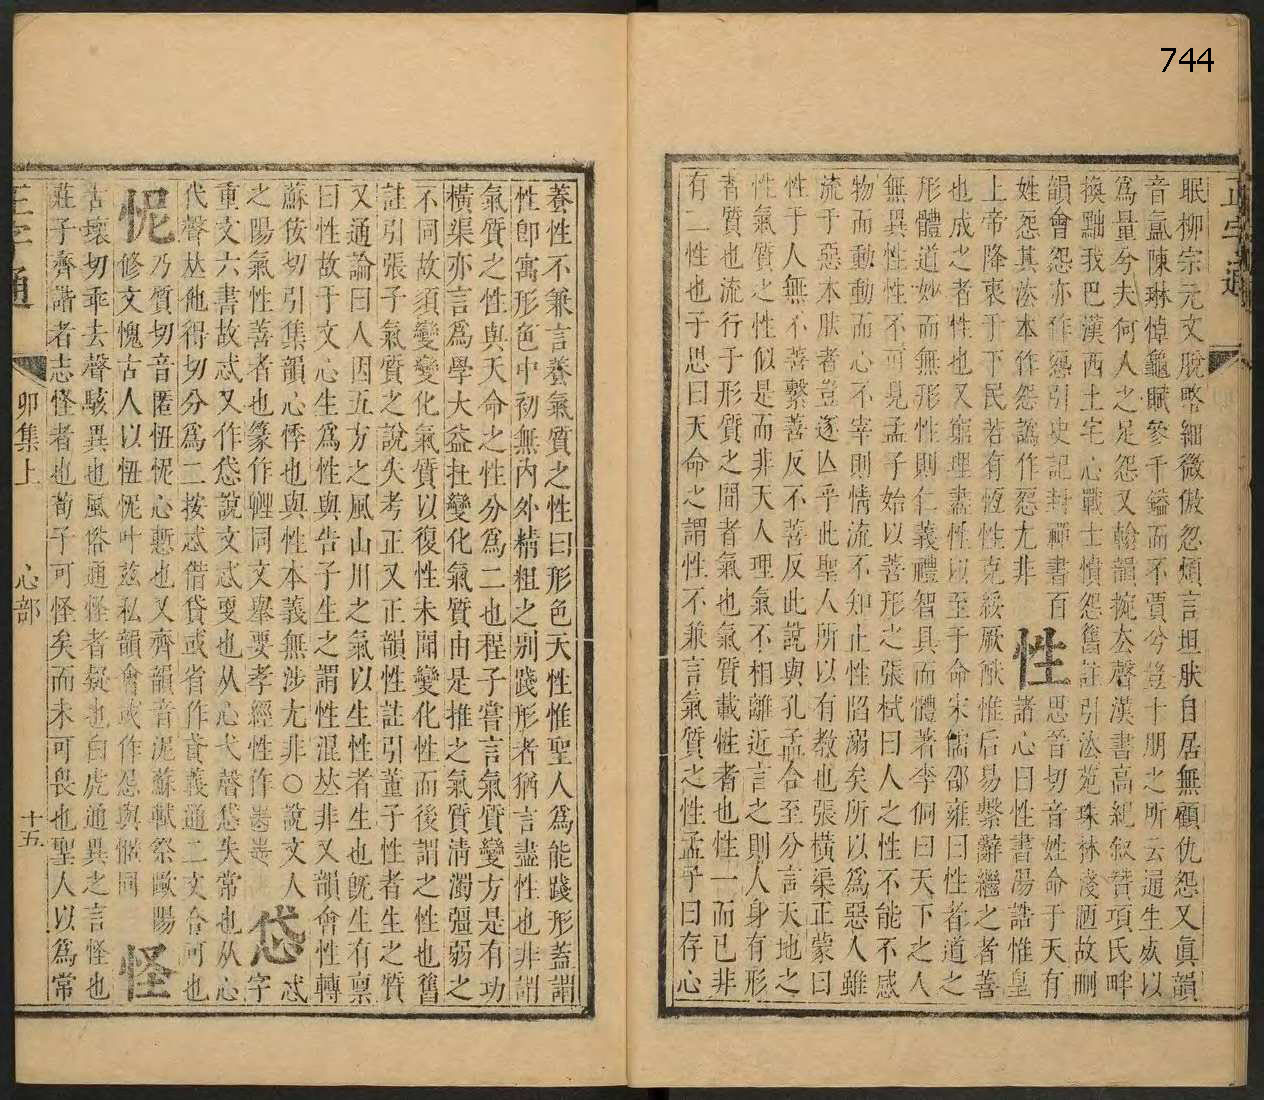 744
正字通
眠柳宗元文脫略細微傲忽煩言坦肰自居無顧仇怨又眞韻
音氳陳琳悼龜賦參千鎰而不賈兮豈十朋之所云通生處以
爲量兮夫何人之足怨又翰韻捥去聲漢書高紀叙贊項氏畔
換黜我巴漢西土宅心戰士憤怨舊註引法苑珠林淺陋故刪
韻會怨亦作㤪引史記封禪書百
姓怨其法本作怨譌作惌尤非
性
思晉切音姓命于天有
諸心曰性書湯誥惟皇
上帝降衷于下民若有恆性克綏厥猷惟后易繫辭繼之者善
也成之者性也又窮理盡性以至于命宋儒邵雍曰性者道之
形體道妙而無形性則仁義禮智具而體著李侗曰天下之人
無異性性不可見孟子始以善形之張栻曰人之性不能不感
物而動動而心不宰則情流不知止性陷溺矣所以爲惡人雖
流于惡本肰者豈遂亾乎此聖人所以有教也張橫渠正蒙曰
性于人無不善繫善反不善反此說與孔孟合至分言天地之
性氣質之性似是而非天人理氣不相離近言之則人身有形
者質也流行于形質之間者氣也氣質載性者也性一而已非
有二性也子思曰天命之謂性不兼言氣質之性孟子曰存心
養性不兼言養氣質之性曰形色天性惟聖人爲能踐形蓋謂
性卽寓形色中初無內外精粗之別踐形者猶言盡性也非謂
氣質之性與天命之性分爲二也程子嘗言氣質變方是有功
橫渠亦言爲學大益在變化氣質由是推之氣質淸濁彊弱之
不同故須變變化氣質以復性未聞變化性而後謂之性也舊
註引張子氣質之說失考正又正韻性註引董子性者生之質
又通論曰人因五方之風山川之氣以生性者生也旣生有稟
曰性故于文心生爲性與告子生之謂性混丛非又韻會性轉
蘇佞切引集韻心悸也與性本義無涉尤非○說文人
之陽氣性善者也篆作𢖽同文舉要孝經性作
㤥
忒
字
重文六書故忒又作㤥說文忒㪅也从心弋聲㤥失常也从心
代聲丛他得切分爲二按忒借貸或省作貣義通二文合可也
怩
乃質切音匿忸怩心慙也又齊韻音泥蘇軾祭歐陽
修文愧古人以忸怩叶茲私韻會或作㤛與㥾同
怪
古壞切乖去聲駭異也風俗通怪者疑也白虎通異之言怪也
莊子齊諧者志怪者也荀子可怪矣而未可畏也聖人以爲常
正字通
卯集上
心部
十五